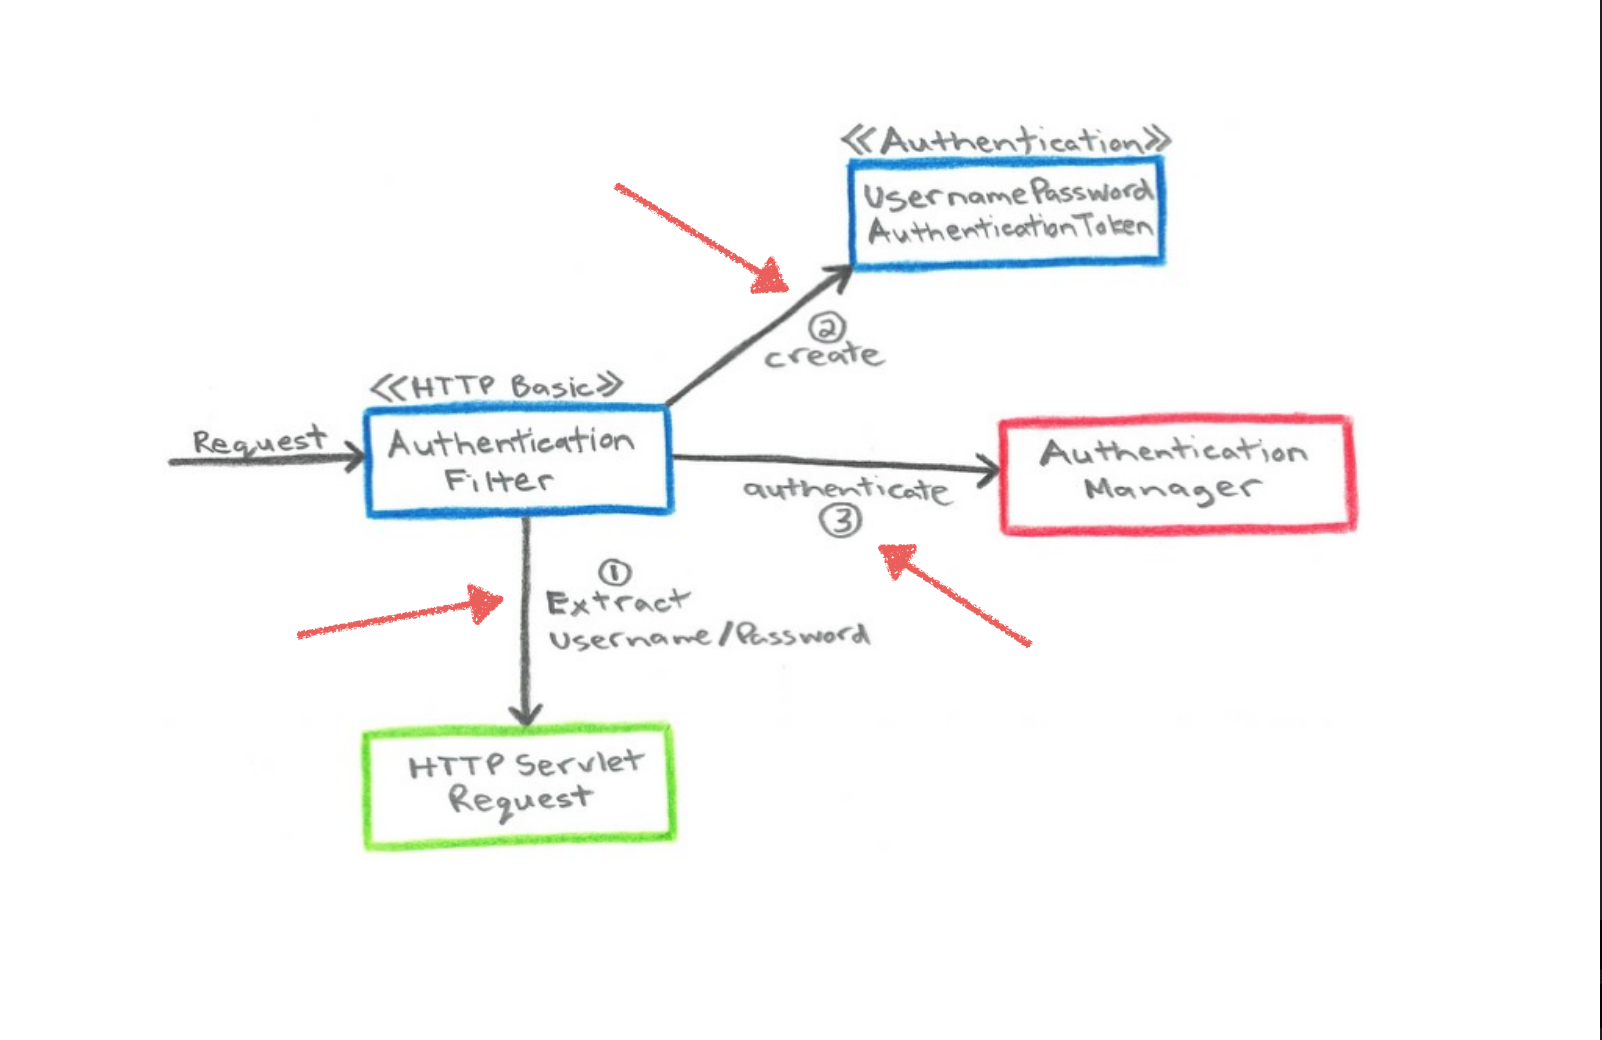 ≪Authentication≫
UsernamePassword
AuthenticationToken
②
create
≪HTTP Basic≫
Request
Authentication
Filter
authenticate
③
Authentication
Manager
①
Extract
Username/Password
HTTP Servlet
Request